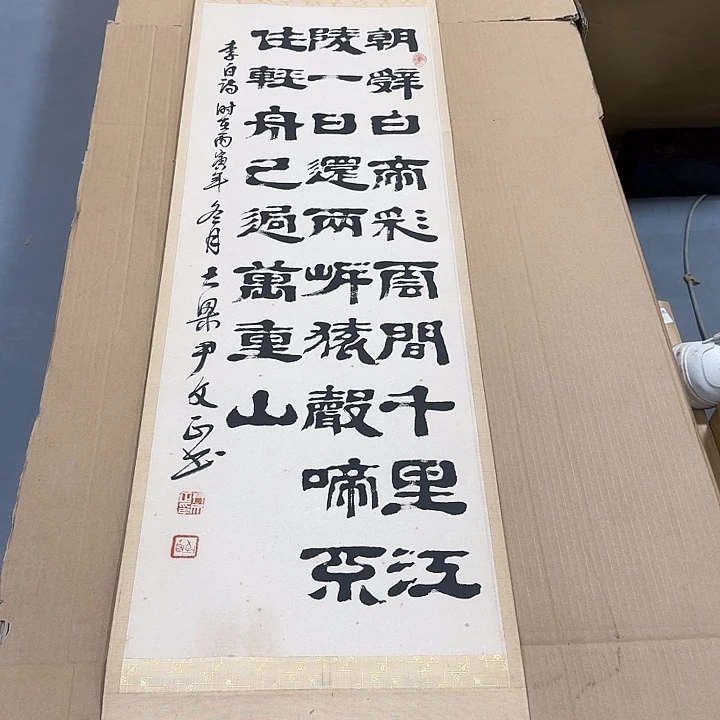 朝辭白帝彩雲間千里江
陵一日還兩岸猿聲啼不
住輕舟已過萬重山
李白詩 时在丙寅年冬月 大梁尹文正书